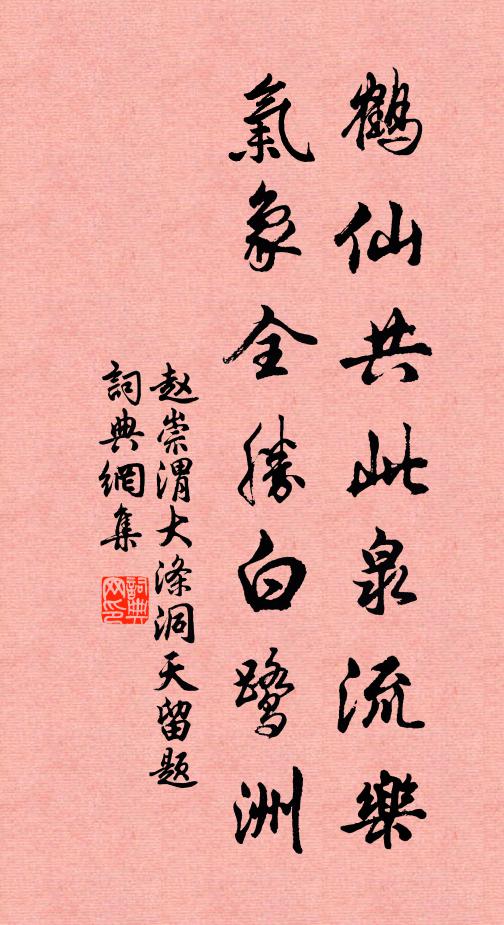 鶴仙共此泉流樂
氣象全勝白鷺洲
赵崇渭大涤洞天留题
詞典網集
詞典網印